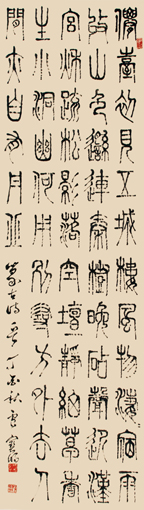 僊臺初見五城樓風物淒淒宿雨
收山色遙連秦樹晚砧聲近漢
宮秋疏松影落空壇靜細草香
生小洞幽何用別尋方外去人
間亦自有丹丘